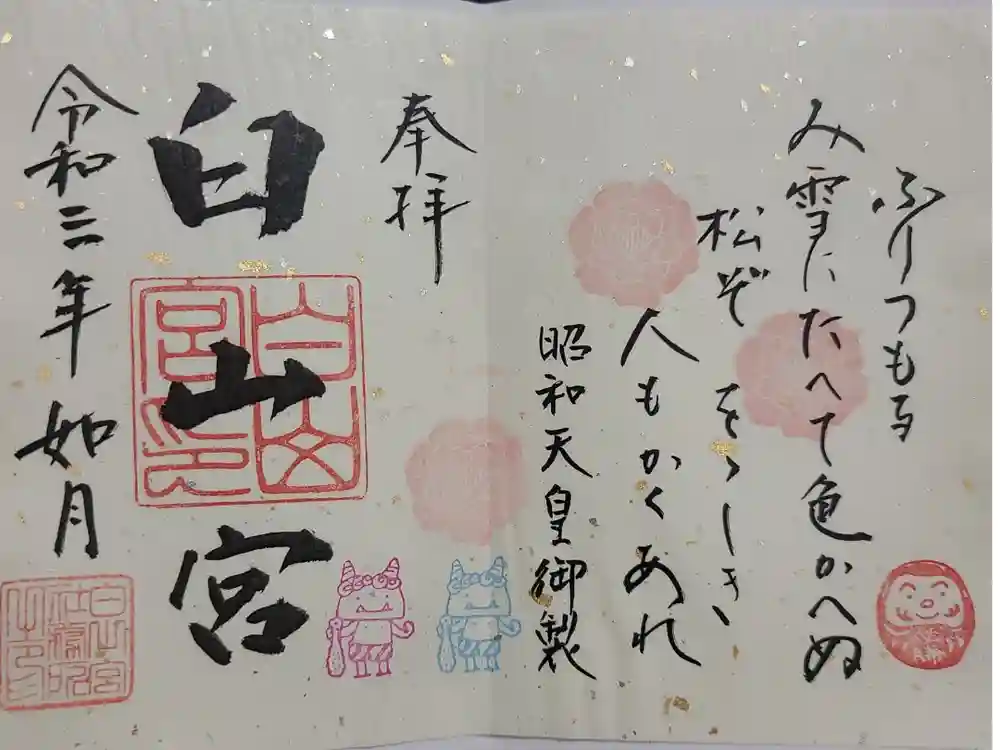 ふりつもる
み雪にたへて色かへぬ
松ぞをゝしき
人もかくあれ
昭和天皇御製
奉拝
白山宮
白山宮印
令和三年如月